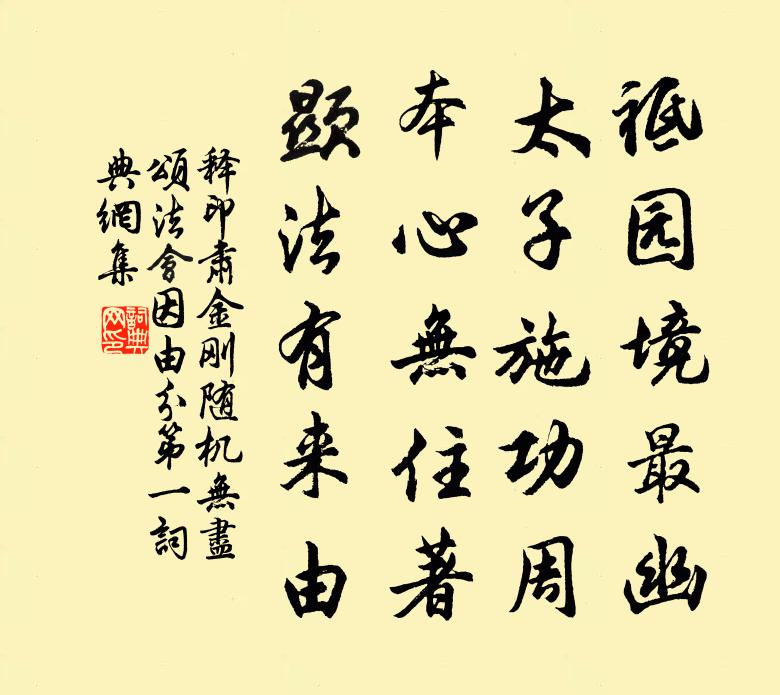 祗园境最幽
太子施功周
本心無住著
顯法有来由
释印肃金刚随机無盡
頌法會因由分第一詞
典網集
詞典網印